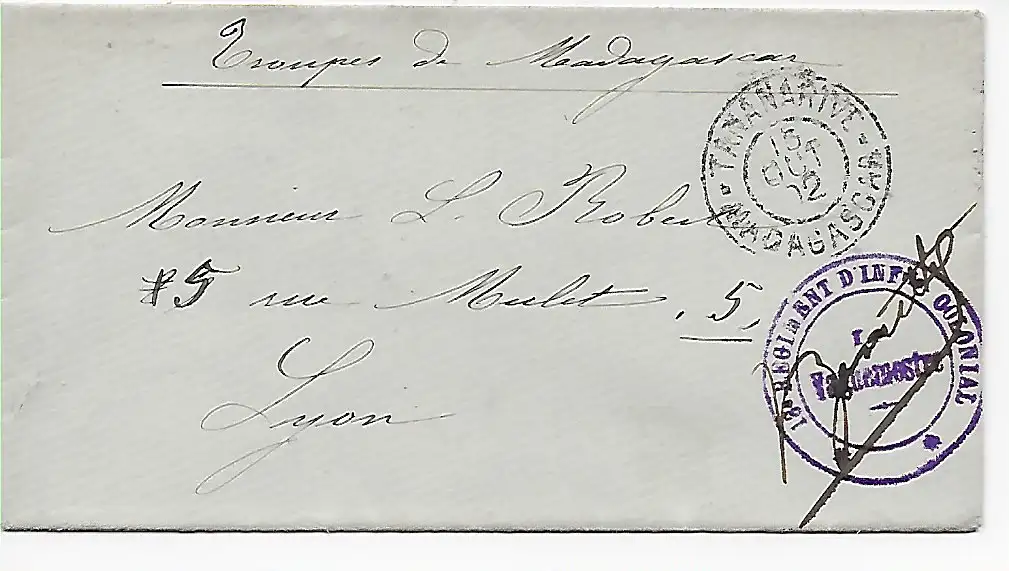 Troupes de Madagascar
TANANARIVE
15
OCT
02
MADAGASCAR
Monsieur L. Robert
5 rue Mulet, 5,
Lyon
REGIMENT D'INFie COLONIAL
Le
Vaguemestre